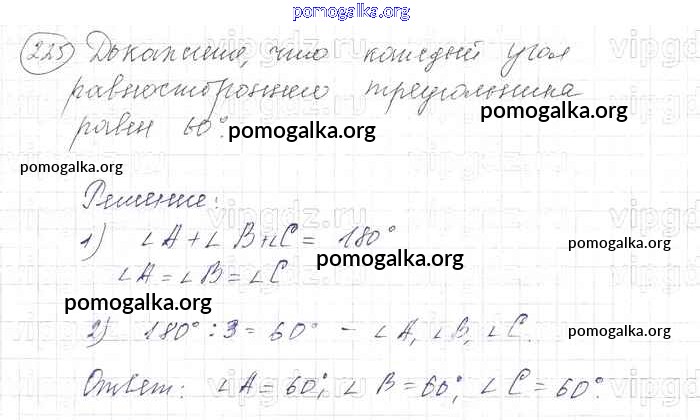 pomogalka.org
225) Докажите, что каждый угол
равностороннего треугольника
равен 60°.
pomogalka.org
pomogalka.org
pomogalka.org
Решение:
1) ∠A + ∠B + ∠C = 180°
pomogalka.org
∠A = ∠B = ∠C
pomogalka.org
pomogalka.org
2) 180° : 3 = 60° – ∠A, ∠B, ∠C.
pomogalka.org
Ответ: ∠A = 60°; ∠B = 60°; ∠C = 60°.